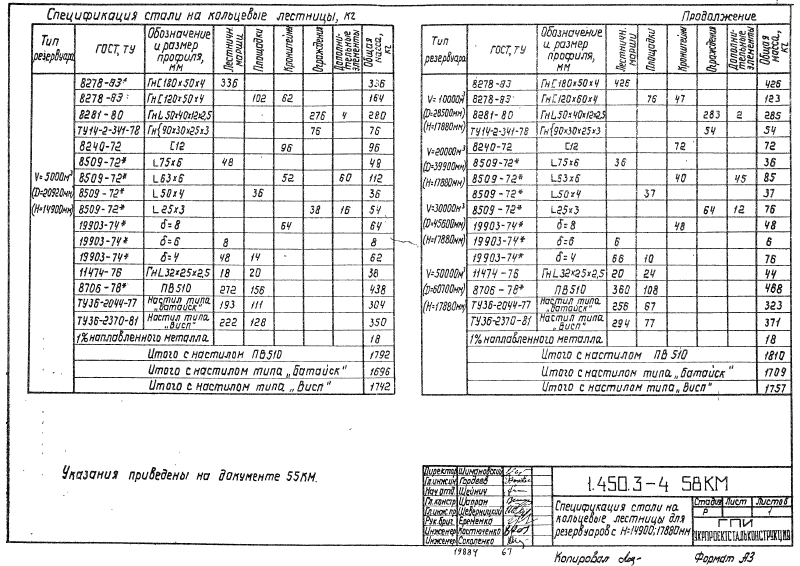 Спецификация стали на кольцевые лестницы, кг
Тип резервуара | ГОСТ, ТУ | Обозначение и размер профиля, мм | Лестничн. марши | Площадки | Кронштейны | Ограждения | Дополнительные элементы | Общая масса, кг
V=5000м³ (D=20920мм) (H=14900мм)
8278-83* | Гн С180×50×4 | 336 | 336
8278-83 | Гн С120×50×4 | 102 | 62 | 164
8281-80 | Гн L 50×40×12×2,5 | 276 | 4 | 280
ТУ14-2-341-78 | Гн[90×30×25×3 | 76 | 76
8240-72 | С12 | 96 | 96
8509-72* | L75×6 | 48 | 48
8509-72* | L63×6 | 52 | 60 | 112
8509-72* | L50×4 | 36 | 36
8509-72* | L25×3 | 38 | 16 | 54
19903-74* | δ=8 | 64 | 64
19903-74* | δ=6 | 8 | 8
19903-74* | δ=4 | 48 | 14 | 62
11474-76 | Гн L 32×25×2,5 | 18 | 20 | 38
8706-78* | ПВ510 | 272 | 156 | 438
ТУ36-2044-77 | Настил типа „Батайск" | 193 | 111 | 304
ТУ36-2370-81 | Настил типа „Висп" | 222 | 128 | 350
1% наплавленного металла | 18
Итого с настилом ПВ510 | 1792
Итого с настилом типа „Батайск" | 1696
Итого с настилом типа „Висп" | 1742
Продолжение
Тип резервуара | ГОСТ, ТУ | Обозначение и размер профиля, мм | Лестничн. марши | Площадки | Кронштейны | Ограждения | Дополнит. элементы | Общая масса, кг
V=10000м³ (D=28500мм) (H=17880мм)
V=20000м³ (D=39900мм) (H=17880мм)
V=30000м³ (D=45600мм) (H=17880мм)
V=50000м³ (D=60700мм) (H=17880мм)
8278-83 | Гн С180×50×4 | 426 | 426
8278-83 | Гн С120×60×4 | 76 | 47 | 123
8281-80 | Гн L 50×40×12×2,5 | 283 | 2 | 285
ТУ14-2-341-78 | Гн[90×30×25×3 | 54 | 54
8240-72 | С12 | 72 | 72
8509-72* | L75×6 | 36 | 36
8509-72* | L63×6 | 40 | 45 | 85
8509-72* | L50×4 | 37 | 37
8509-72* | L25×3 | 64 | 12 | 76
19903-74* | δ=8 | 48 | 48
19903-74* | δ=6 | 6 | 6
19903-74* | δ=4 | 66 | 10 | 76
11474-76 | Гн L 32×25×2,5 | 20 | 24 | 44
8706-78* | ПВ510 | 360 | 108 | 468
ТУ36-2044-77 | Настил типа „Батайск" | 256 | 67 | 323
ТУ36-2370-81 | Настил типа „Висп" | 294 | 77 | 371
1% наплавленного металла | 18
Итого с настилом ПВ510 | 1810
Итого с настилом типа „Батайск" | 1709
Итого с настилом типа „Висп" | 1757
Указания приведены на документе 55КМ.
Директор Шимановский
Гл.инжин. Гордеев
Нач.отд. Шейнич
Гл.констр. Шапран
Гл.инж.пр. Шеверницкий
Рук.бриг. Еременко
Инженер Костюченко
Инженер Соколенко
1.450.3-4 58КМ
Спецификация стали на кольцевые лестницы для резервуаров с H=14900; 17880мм
Стадия | Лист | Листов
Р | 1
ГПИ
УКРПРОЕКТСТАЛЬКОНСТРУКЦИЯ
19884 67
Копировал
Формат А3